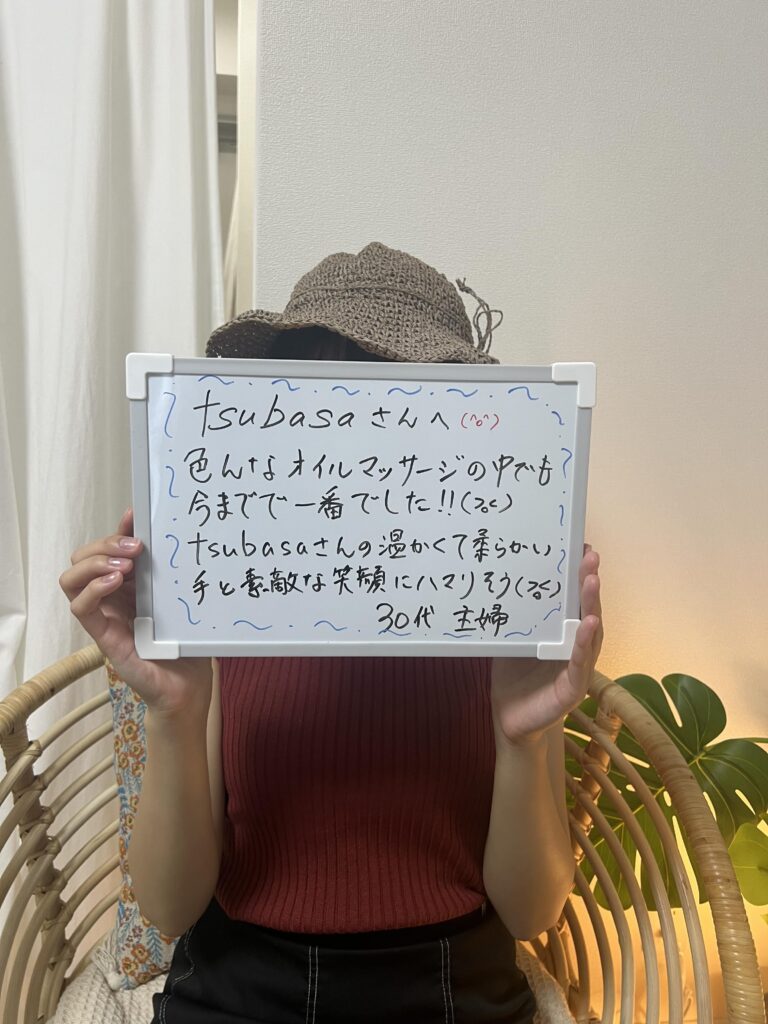 tsubasaさんへ(^o^)
色んなオイルマッサージの中でも
今までで一番でした!!(>o<)
tsubasaさんの温かくて柔らかい
手と素敵な笑顔にハマりそう(>o<)
30代 主婦